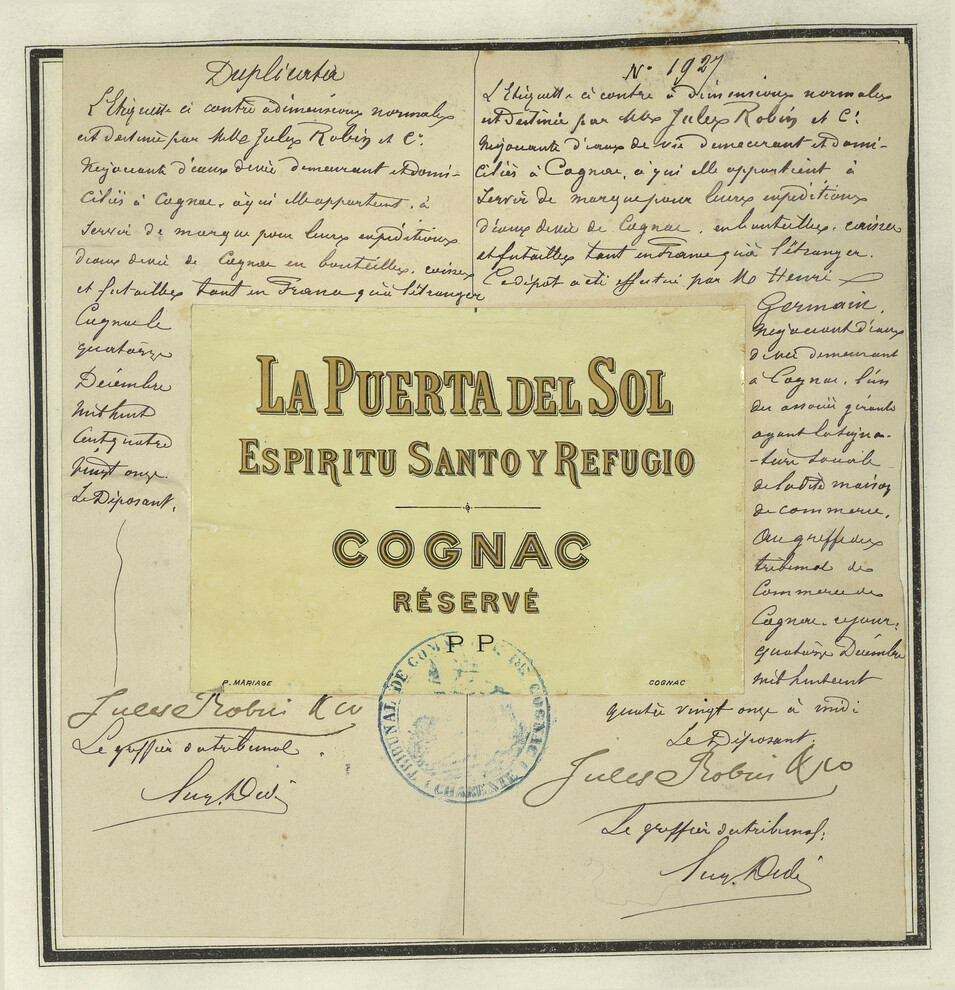 Duplicata
L'Etiquette ci contre a dimensions normales
est destinée par MMs Jules Robin et Cie
Négociants d'eaux de vie demeurant et domi-
ciliés à Cognac, à qui elle appartient, à
servir de marque pour leurs expéditions
d'eaux de vie de Cognac en bouteilles, caisses
et futailles tant en France qu'à l'étranger
Cognac le
quatorze
Décembre
mil huit
cent quatre
vingt onze.
Le Déposant.
Jules Robin & Co
Le greffier du tribunal.
N° 1927
L'Etiquette ci contre à dimensions normales
est destinée par MMs Jules Robin et Cie
Négociants d'eaux de vie demeurant et domi-
ciliés à Cognac, à qui elle appartient à
servir de marque pour leurs expéditions
d'eaux de vie de Cognac, en bouteilles, caisses
et futailles tant en France qu'à l'étranger.
Ce dépôt a été effectué par M. Henri
Germain,
Négociant d'eaux
de vie demeurant
à Cognac, l'un
des associés gérants
ayant la signa-
-ture sociale
de la dite maison
de commerce,
Au greffe du
tribunal de
Commerce de
Cognac, ce jour:
quatorze Décembre
mil huit cent
quatre vingt onze à midi
Le Déposant:
Jules Robin & Co
Le greffier du tribunal:
LA PUERTA DEL SOL
ESPIRITU SANTO Y REFUGIO
COGNAC
RÉSERVÉ
P P
P. MARIAGE COGNAC
TRIBUNAL DE COMMERCE DE COGNAC
CHARENTE